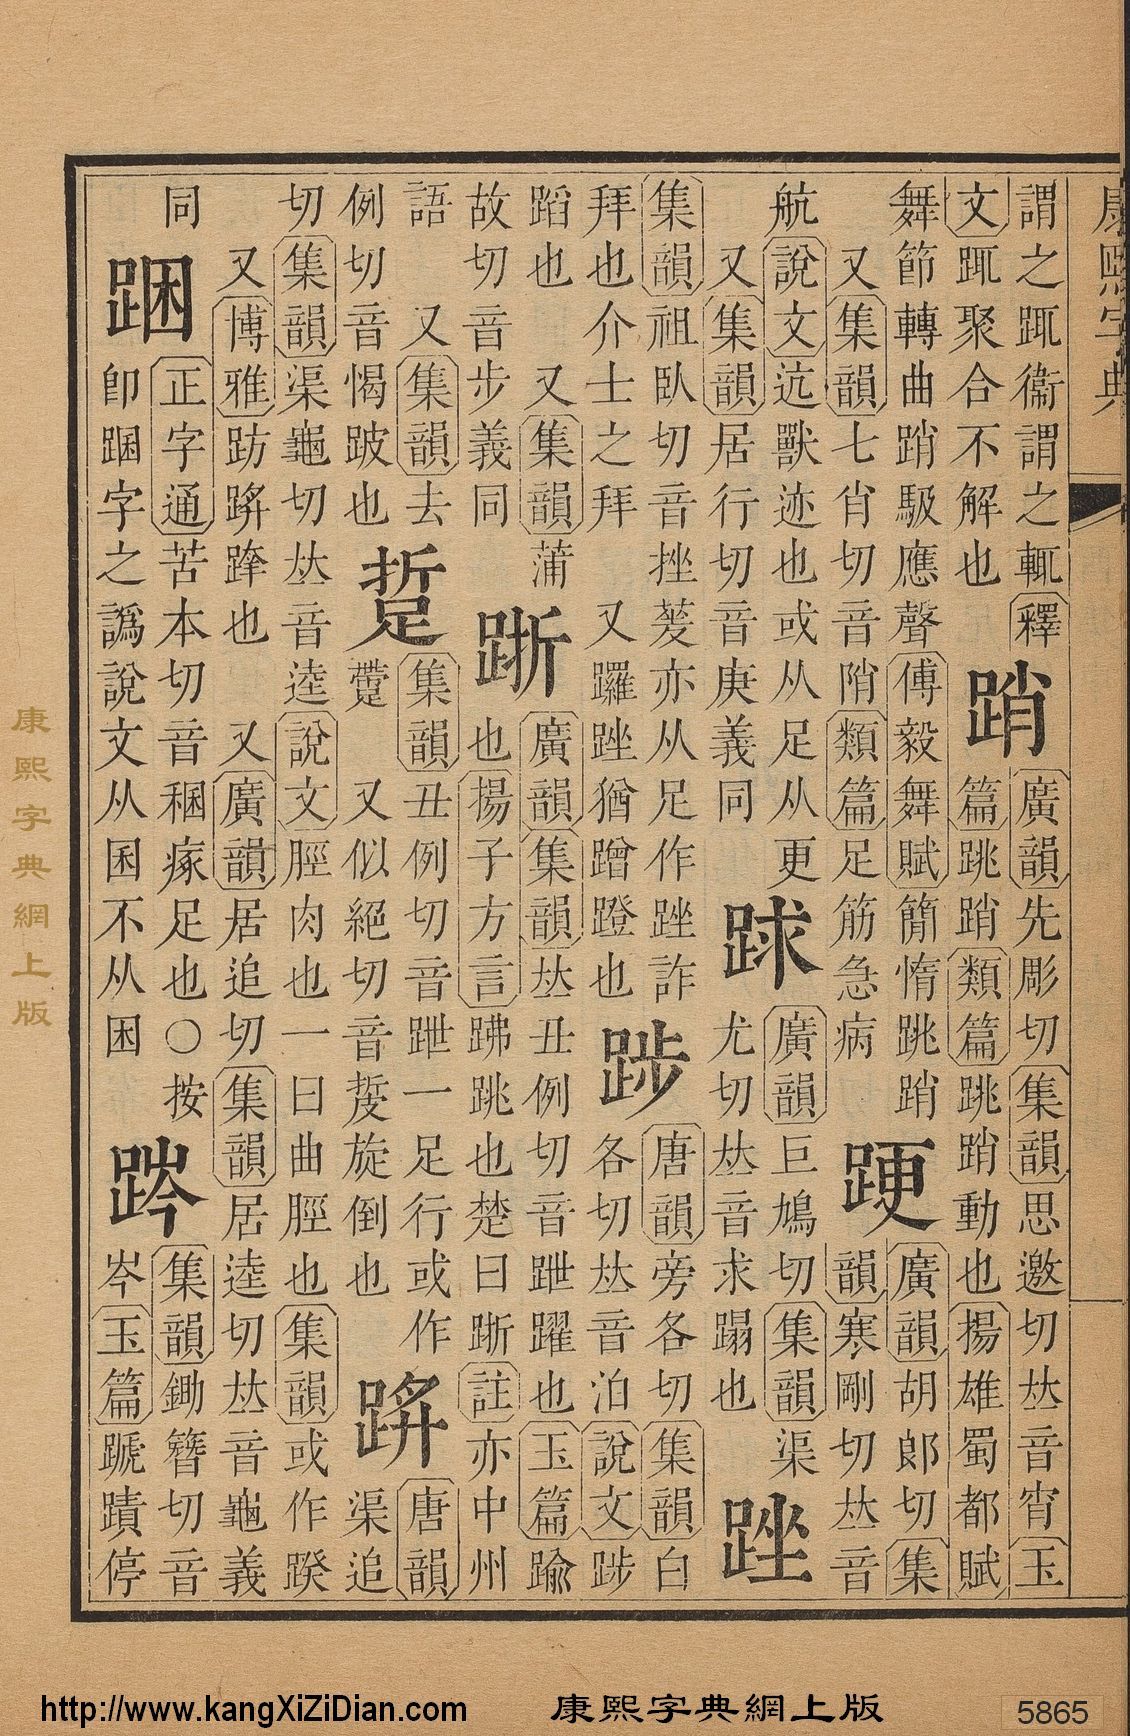 謂之踂衞謂之輒釋
文踂聚合不解也
踃
廣韻先彫切集韻思邀切𠀤音宵玉
篇跳踃類篇跳踃動也揚雄蜀都賦
舞節轉曲踃馺應聲傅毅舞賦簡惰跳踃
又集韻七肖切音陗類篇足筋急病
𨁈
廣韻胡郎切集
韻寒剛切𠀤音
航說文迒獸迹也或从足从更
又集韻居行切音庚義同
廣韻巨鳩切集韻渠
尤切𠀤音求蹋也
䟶
集韻祖臥切音挫夎亦从足作䟶詐
拜也介士之拜
又𨇽䟶猶蹭蹬也
踄
唐韻旁各切集韻白
各切𠀤音泊說文踄
蹈也
又集韻蒲
故切音步義同
䟷
廣韻集韻𠀤丑例切音跇躍也玉篇踰
也揚子方言跳也楚曰䟷註亦中州
語
又集韻去
例切音愒跛也
踅
集韻丑例切音跇一足行或作
又似絕切音旋倒也
唐韻
渠追
切集韻渠龜切𠀤音逵說文脛肉也一曰曲脛也集韻或作
又博雅趽也
又廣韻居追切集韻居逵切𠀤音龜義
同
正字通苦本切音稇瘃足也○按
卽字之譌說文从囷不从困
集韻鋤簪切音
岑玉篇蹏蹟停
康熙字典
康熙字典網上版
http://www.kangXiZiDian.com
康熙字典網上版
5865